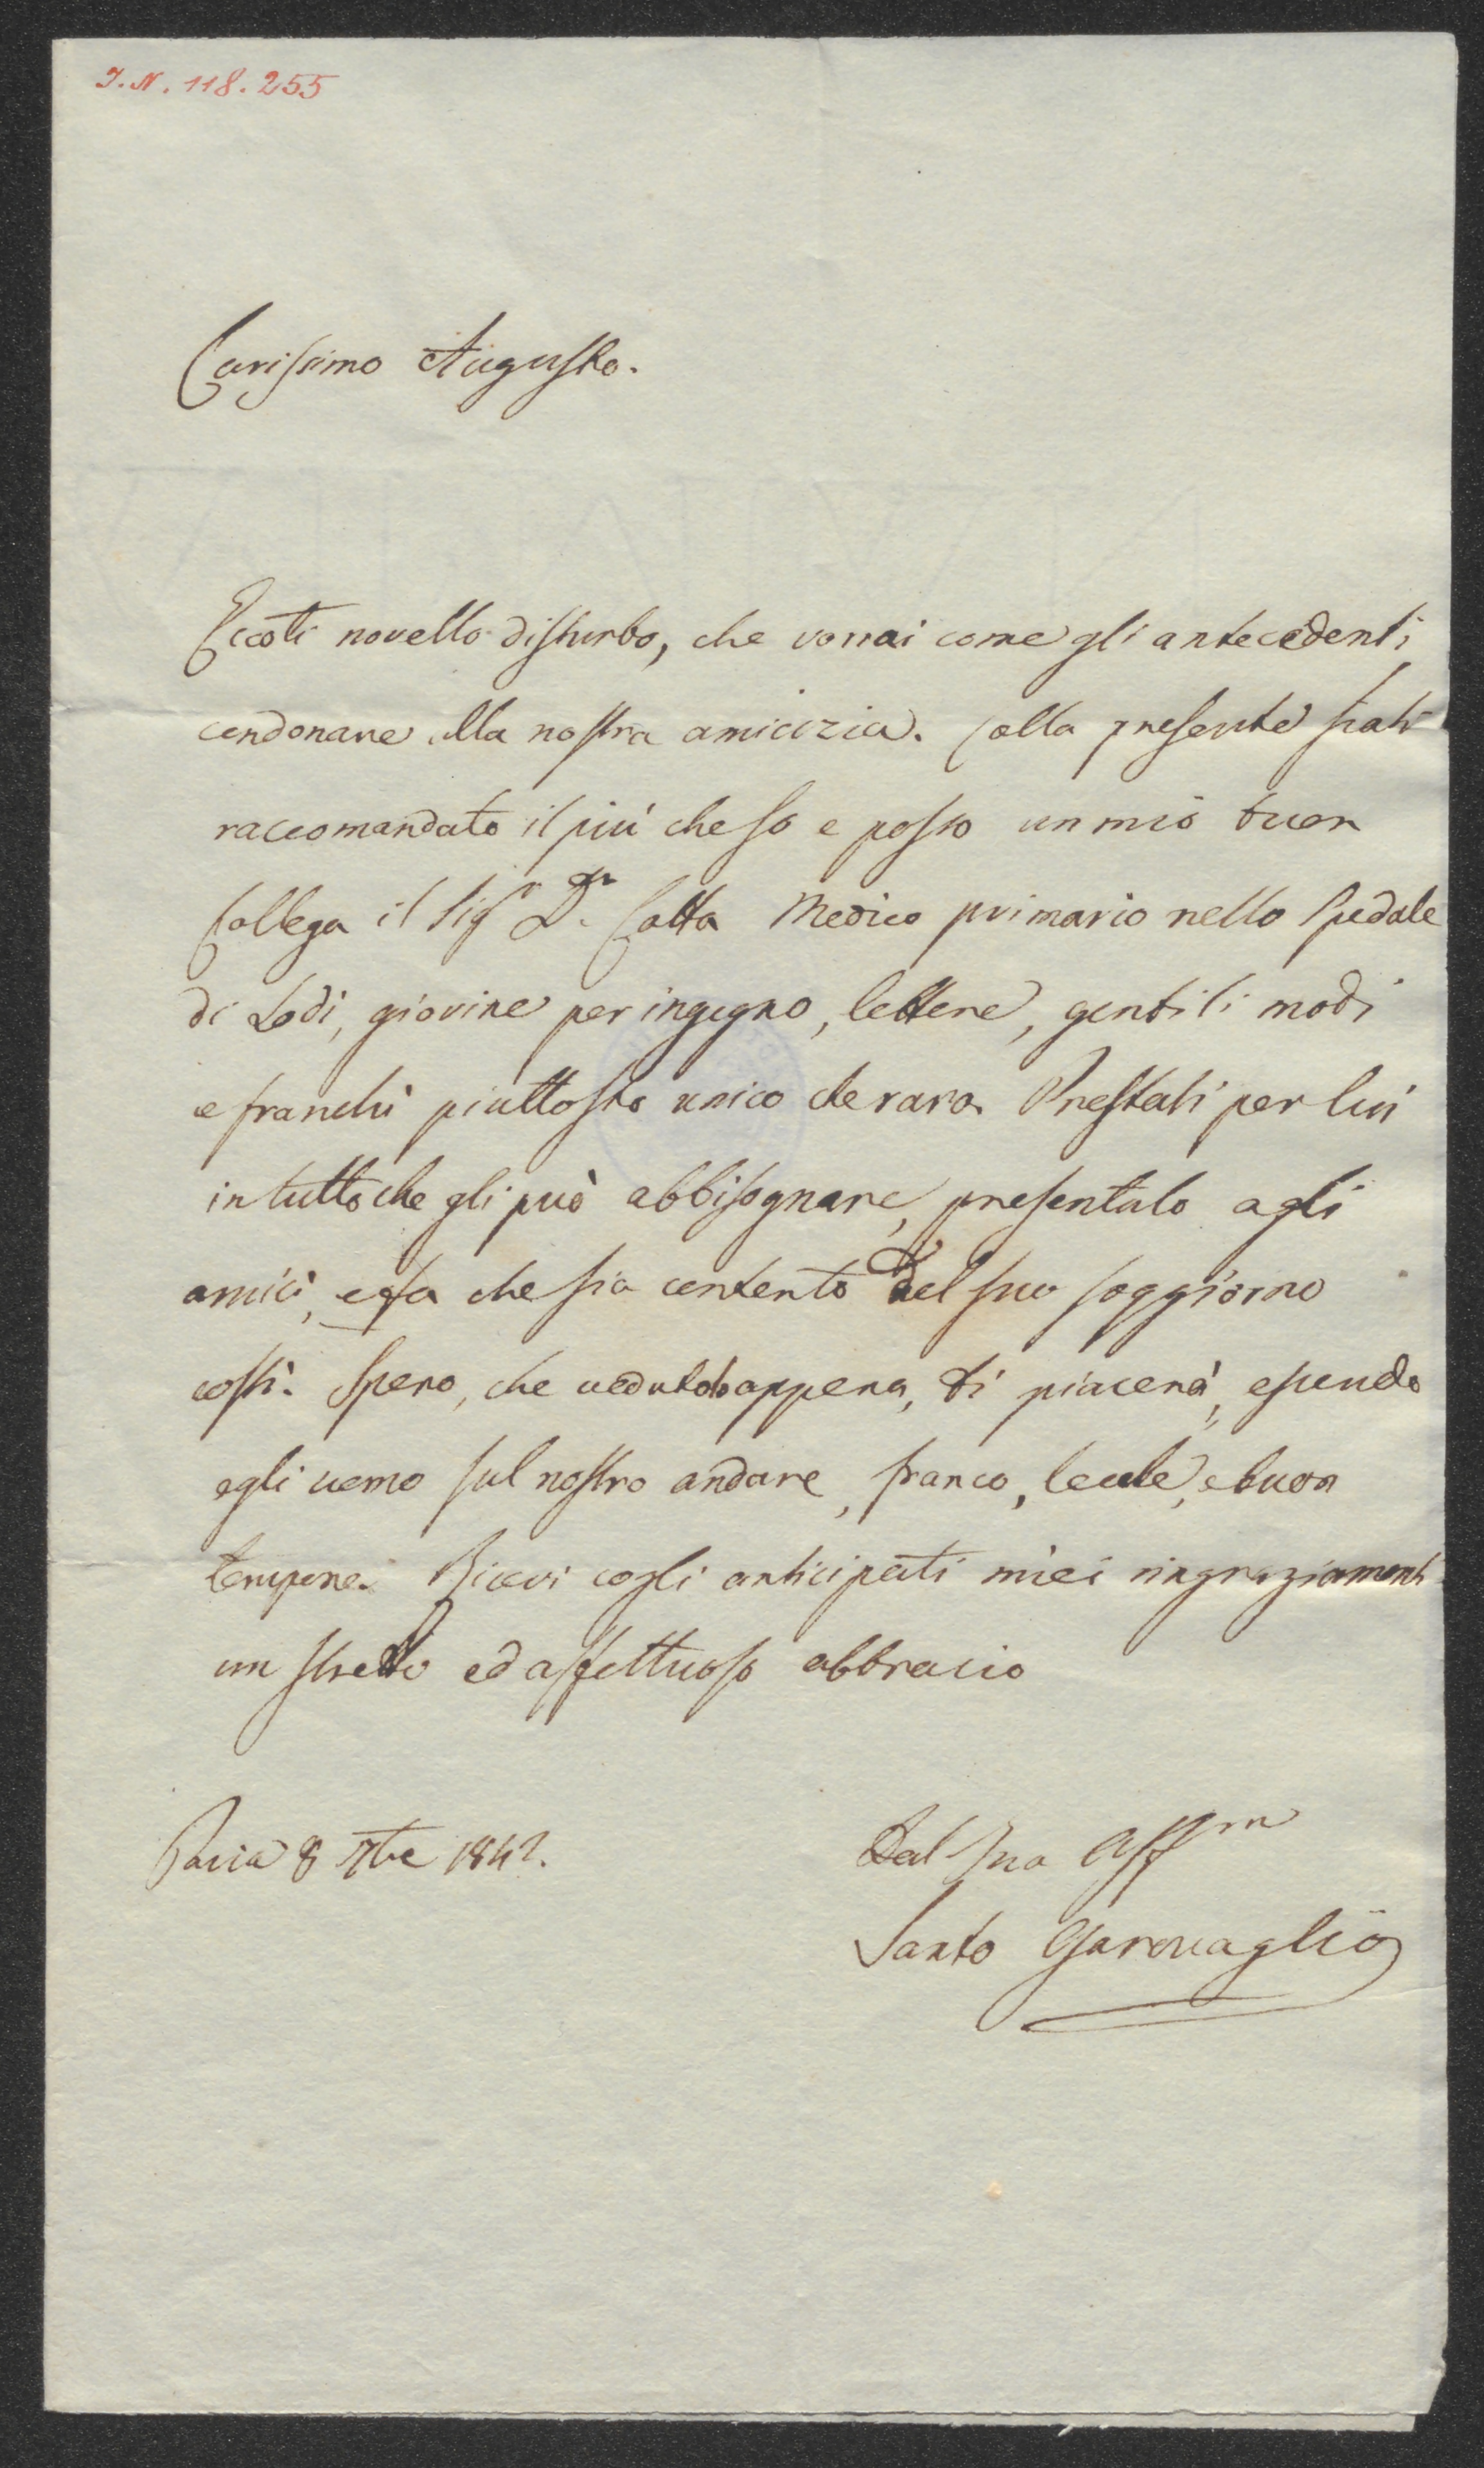 I.N. 118.255
Carissimo Augusto.
Eccoti novello disturbo, che vorrai come gli antecedenti
condonare alla nostra amicizia. Colla presente siati
raccomandato il più che so e posso un mio buon
Collega il Sigr Dr. Cotta Medico primario nello Spedale
di Lodi, giovine per ingegno, lettere, gentili modi
e franchi piuttosto unico che raro. Prestati per lui
in tutto che gli può abbisognare, presentalo agli
amici, e fa che sia contento del suo soggiorno
costì. Spero, che vedutolo appena, ti piacerà, essendo
egli uomo sul nostro andare, franco, leale, e buon
tempone. Ricevi cogli anticipati miei ringraziamenti
un stretto ed affettuoso abbracio
Pavia 8 7bre 1842.
Dal Tuo Affmo
Santo Garovaglio